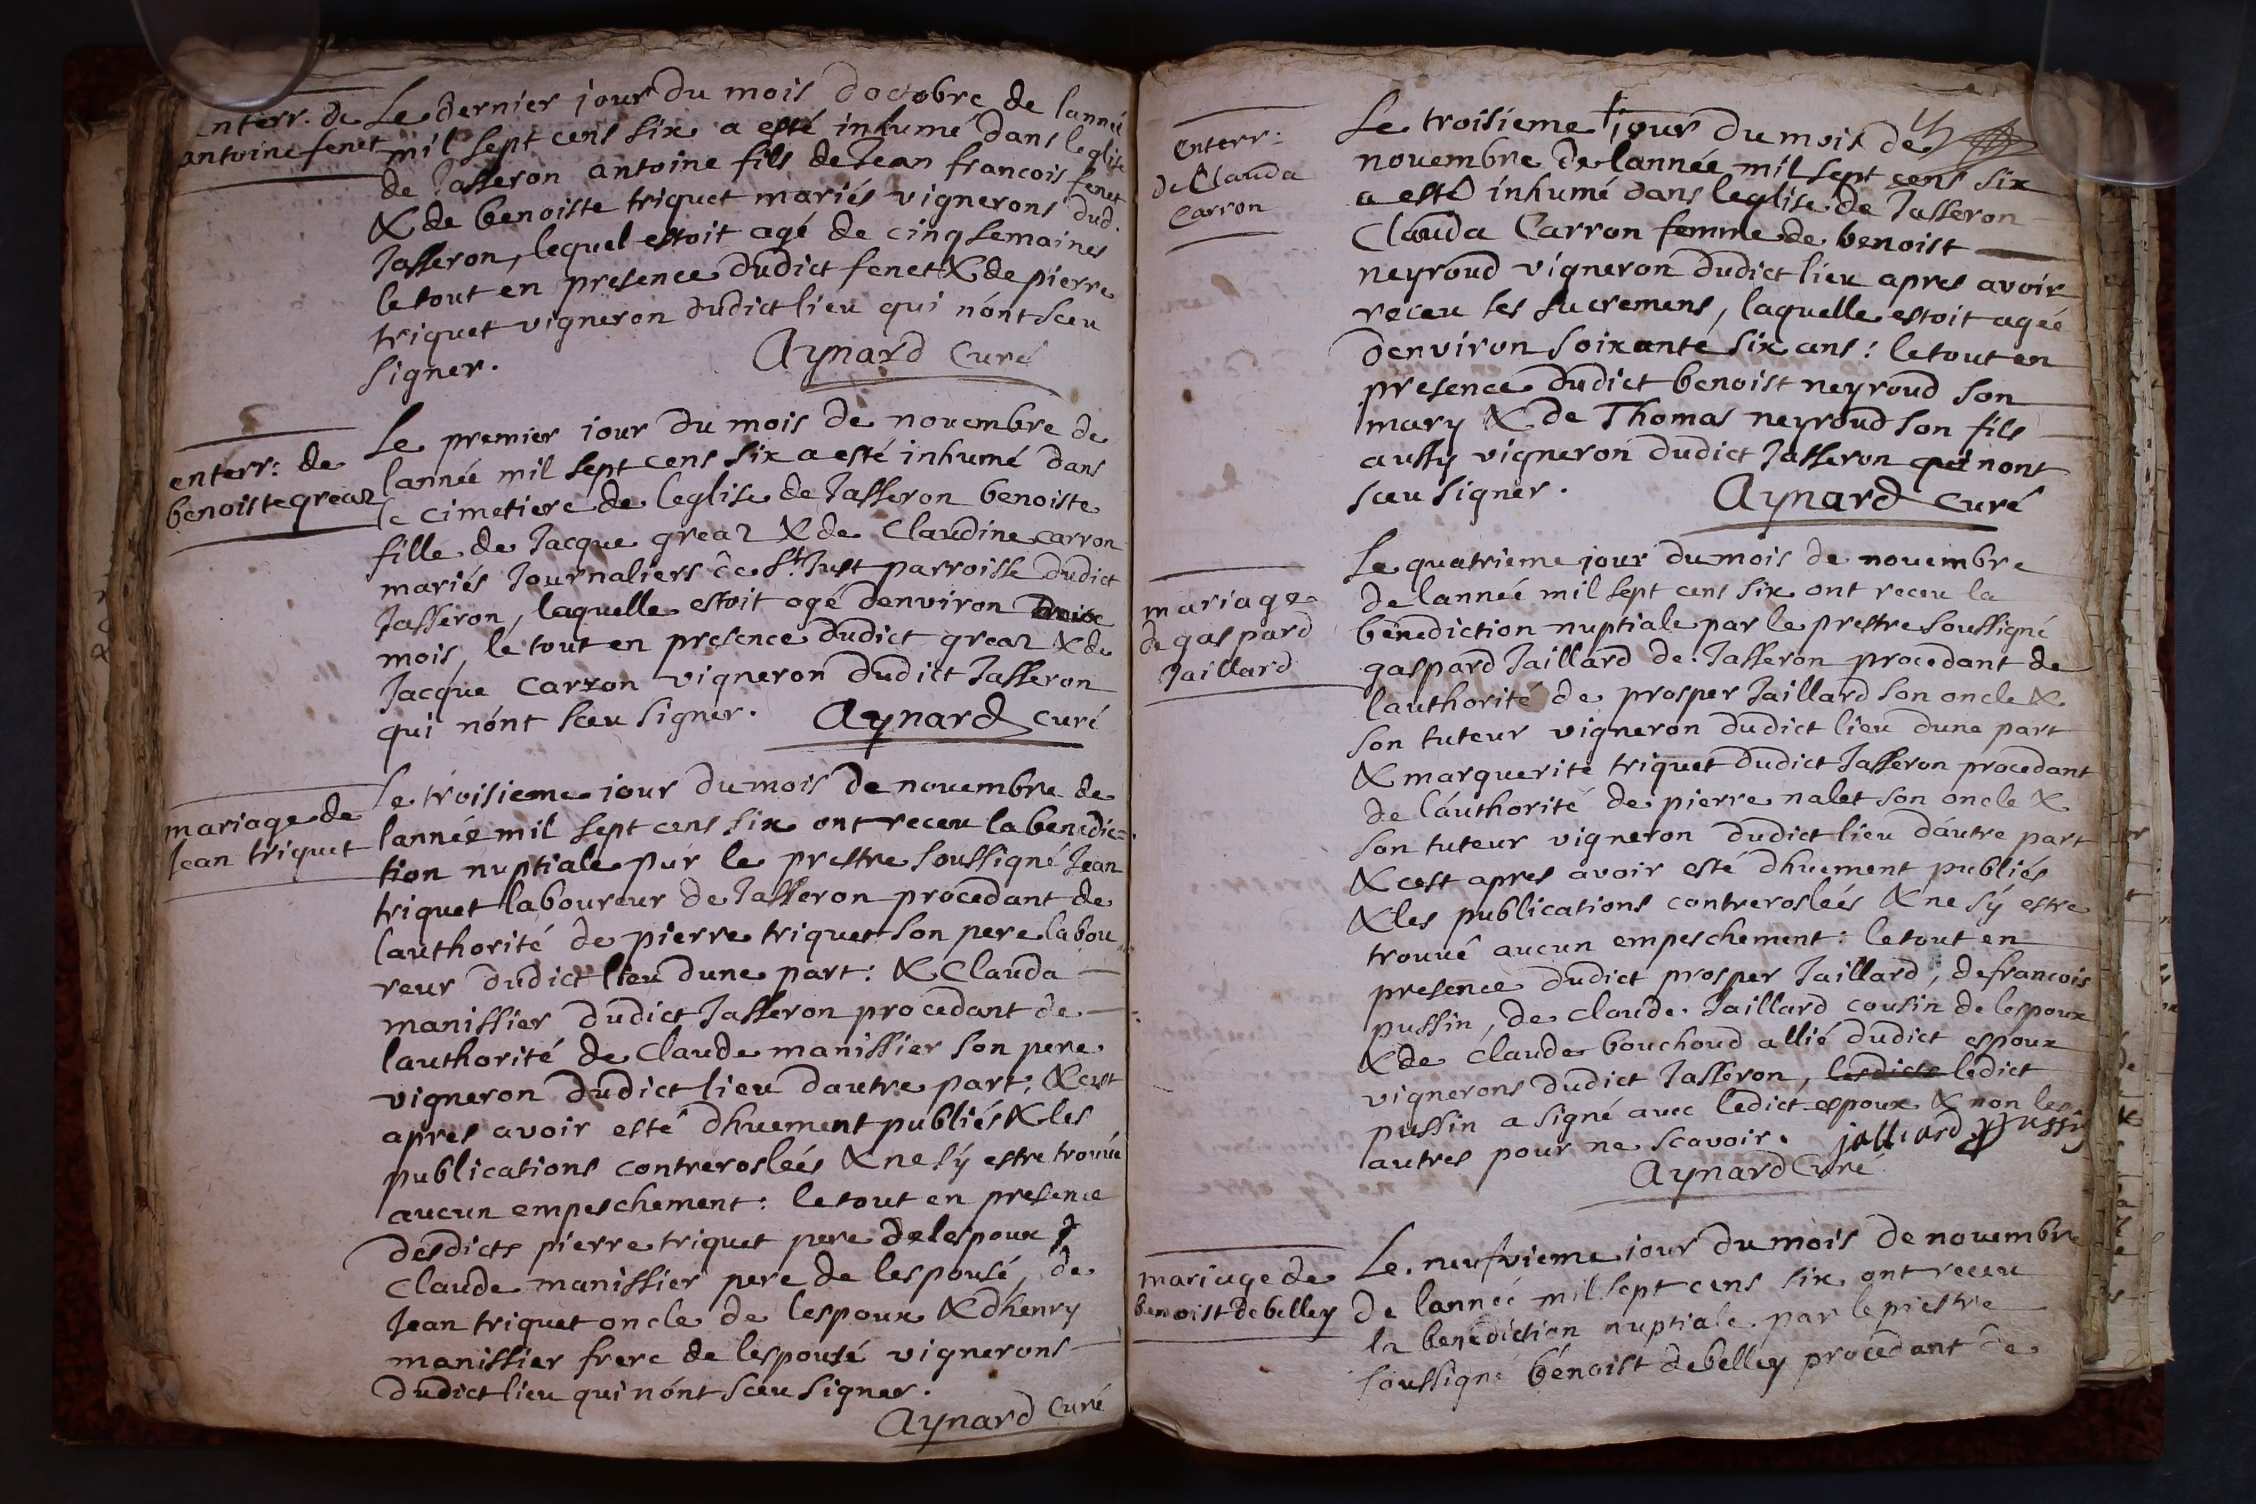 enterr. de
antoine fenet
Le dernier jour du mois doctobre de lannée
mil sept cens six a esté inhumé dans leglise
de Jasseron antoine fils de Jean francois fenet
& de benoiste triquet mariés vignerons dud.
Jasseron, lequel estoit agé de cinq semaines
le tout en presence dudict fenet & de pierre
triquet vigneron dudict lieu qui nont sceu
signer.
Aynard Curé
enterr: de
benoiste grear
Le premier jour du mois de novembre de
lannée mil sept cens six a esté inhumé dans
le cimetiere de leglise de Jasseron benoiste
fille de Jacque grear & de Claudine carron
mariés Journaliers de St Just parroisse dudict
Jasseron, laquelle estoit agé denviron
mois, le tout en presence dudict grear & de
Jacque Carron vigneron dudict Jasseron
qui nont sceu signer. Aynard curé
mariage de
Jean triquet
Le troisieme jour du mois de novembre de
lannée mil sept cens six ont receu la benedic=
tion nuptiale par le prestre soussigné Jean
triquet laboureur de Jasseron procedant de
lauthorité de pierre triquet son pere labou
reur dudict lieu dune part: & Clauda
manissier dudict Jasseron procedant de
lauthorité de Claude manissier son pere
vigneron dudict lieu dautre part: & cest
apres avoir esté dhuement publiés & les
publications contreroslées & ne sy estre trouvé
aucun empeschement: le tout en presence
desdicts pierre triquet pere de lespoux &
Claude manissier pere de lespousé, de
Jean triquet oncle de lespoux & dhenry
manissier frere de lespousé vignerons
dudict lieu qui nont sceu signer.
Aynard Curé
enterr:
de Clauda
Carron
Le troisieme jour du mois de
novembre de lannée mil sept cens six
a esté inhumé dans leglise de Jasseron
Clauda Carron femme de benoist
neyroud vigneron dudict lieu apres avoir
receu ses sacremens, laquelle estoit agée
denviron soixante six ans: le tout en
presence dudict benoist neyroud son
mary & de Thomas neyroud son fils
aussy vigneron dudict Jasseron qui nont
sceu signer.
Aynard curé
mariage
de gaspard
Jaillard
Le quatrieme jour du mois de novembre
de lannée mil sept cens six ont receu la
benediction nuptiale par le prestre soussigné
gaspard Jaillard de Jasseron procedant de
lauthorité de prosper Jaillard son oncle &
son tuteur vigneron dudict lieu dune part
& marguerite triquet dudict Jasseron procedant
de lauthorité de pierre nalet son oncle &
son tuteur vigneron dudict lieu dautre part
& cest apres avoir esté dhuement publiés
& les publications contreroslées & ne sy estre
trouvé aucun empeschement: le tout en
presence dudict prosper Jaillard, de francois
pussin, de claude Jaillard cousin de lespoux
& de Claude bouchoud allié dudict espoux
vignerons dudict Jasseron, lesdicts ledict
pussin a signé avec ledict espoux & non les
autres pour ne scavoir. jalliard
Aynard Curé
mariage de
benoist debelley
Le neufvieme jour du mois de novembre
de lannée mil sept cens six ont receu
la benediction nuptiale par le prestre
soussigné benoist debelley procedant de